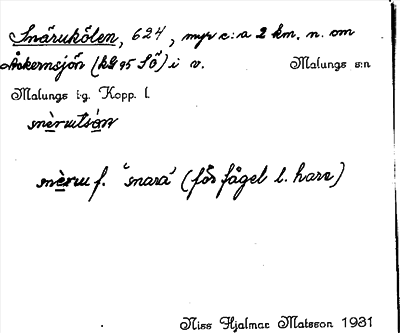 Snärukölen, 624, myr c:a 2 km. n. om
Åkernsjön (kbl 95 SÖ) i v. Malungs s:n
Malungs t-g. Kopp. l.
snèrutsön
snèru f. "snara" (för fågel l. hare)
Niss Hjalmar Matsson 1931